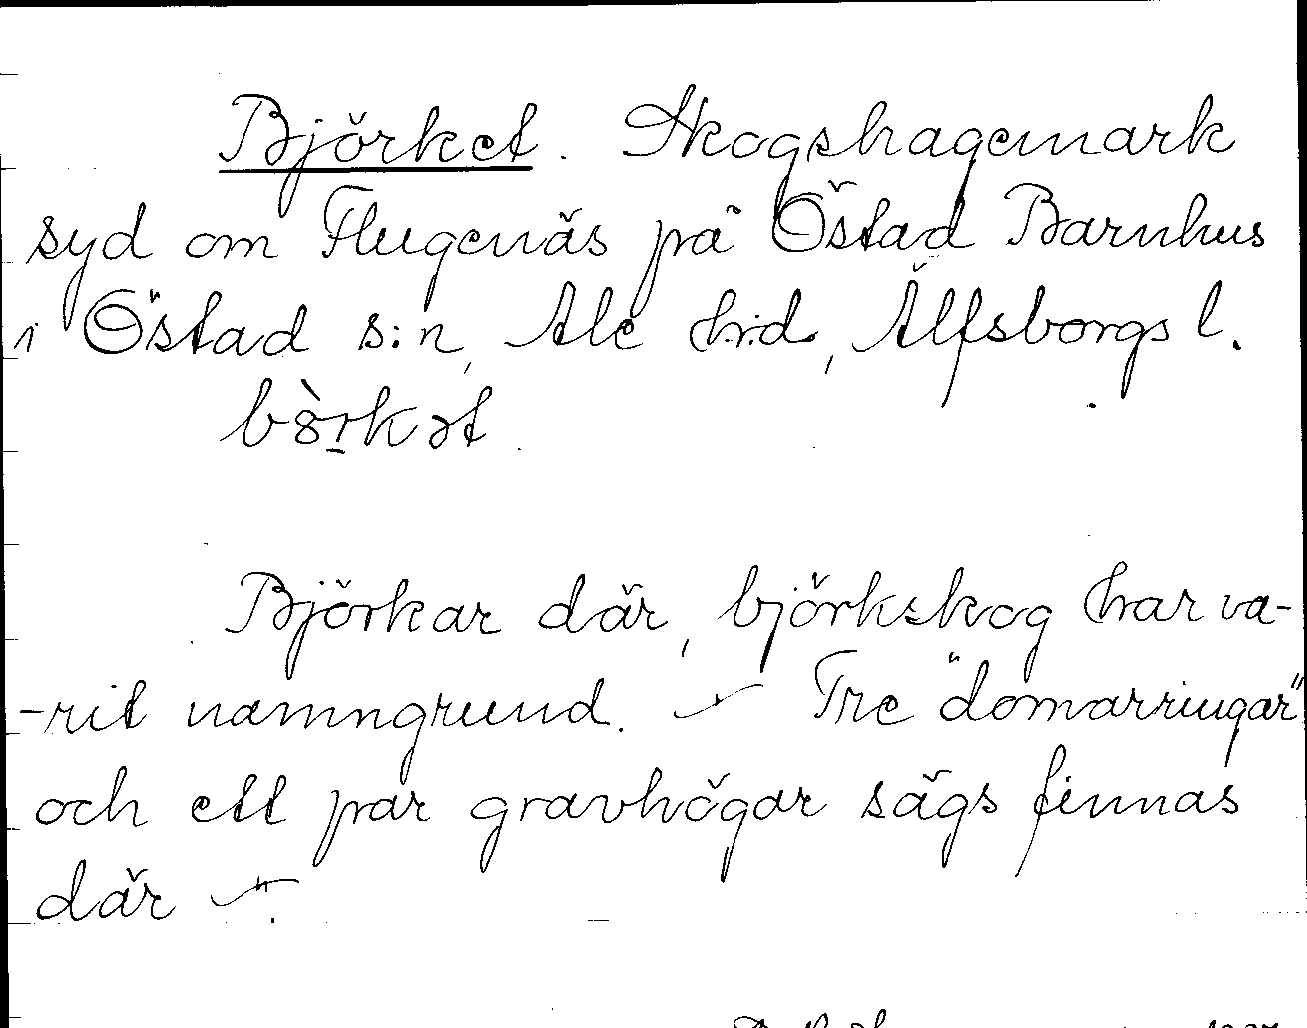 Björket. Skogshagemark
syd om Flugenäs på Östad Barnhus
i Östad s:n, Ale h:d, Älfsborgs l.
bö̀rkət.
Björkar där, björkskog har va-
-rit namngrund. – Tre "domarringar"
och ett par gravhögar sägs finnas
där –".